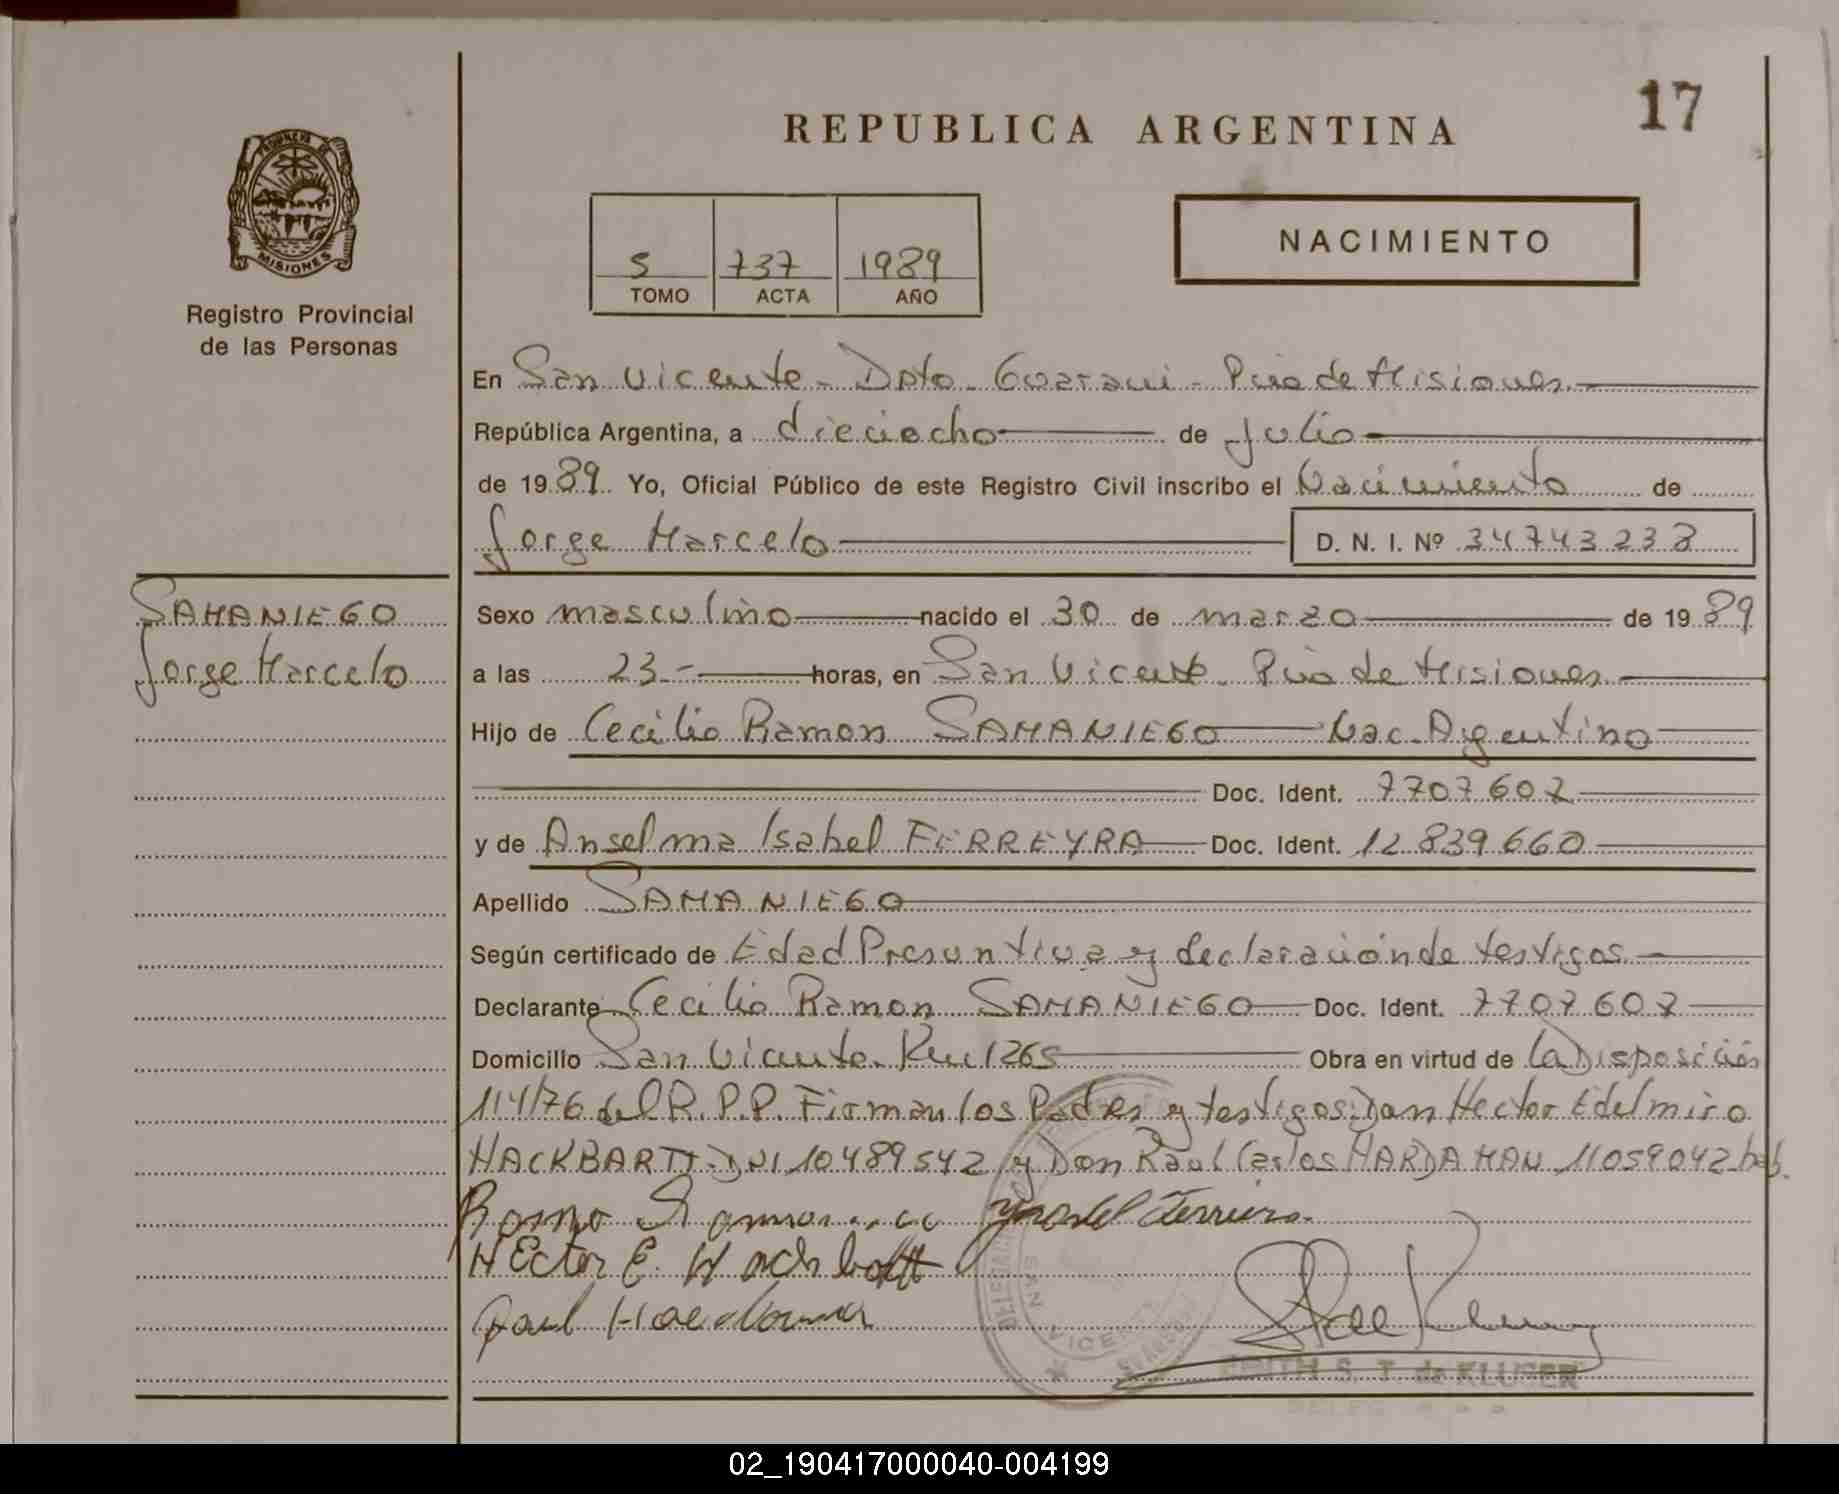 17
REPUBLICA ARGENTINA
PROVINCIA DE
MISIONES
Registro Provincial
de las Personas
NACIMIENTO
5 737 1989
TOMO ACTA AÑO
En San Vicente - Dpto. Guarani - Pcia de Misiones.
República Argentina, a dieciocho de Julio
de 1989. Yo, Oficial Público de este Registro Civil inscribo el Nacimiento de
Jorge Marcelo D. N. I. Nº 34743238
SAMANIEGO
Jorge Marcelo
Sexo masculino nacido el 30 de marzo de 1989
a las 23.- horas, en San Vicente. Pcia de Misiones.
Hijo de Cecilio Ramon SAMANIEGO Nac. Argentino
Doc. Ident. 7707607
y de Anselma Isabel FERREYRA Doc. Ident. 12.839.660
Apellido SAMANIEGO
Según certificado de Edad Presuntiva y declaración de testigos.
Declarante Cecilio Ramon SAMANIEGO Doc. Ident. 7707607
Domicilio San Vicente. Km 1265 Obra en virtud de la Disposición
114/76 del R.P.P. Firman los Padres y testigos: Don Hector Edelmiro
HACKBARTT. DNI 10489542 y Don Raul Carlos HARDAMAN 11059042
Hector E. Hachbartt
SAN VICENTE
EDITH S. T. de KLUSER
02_190417000040-004199